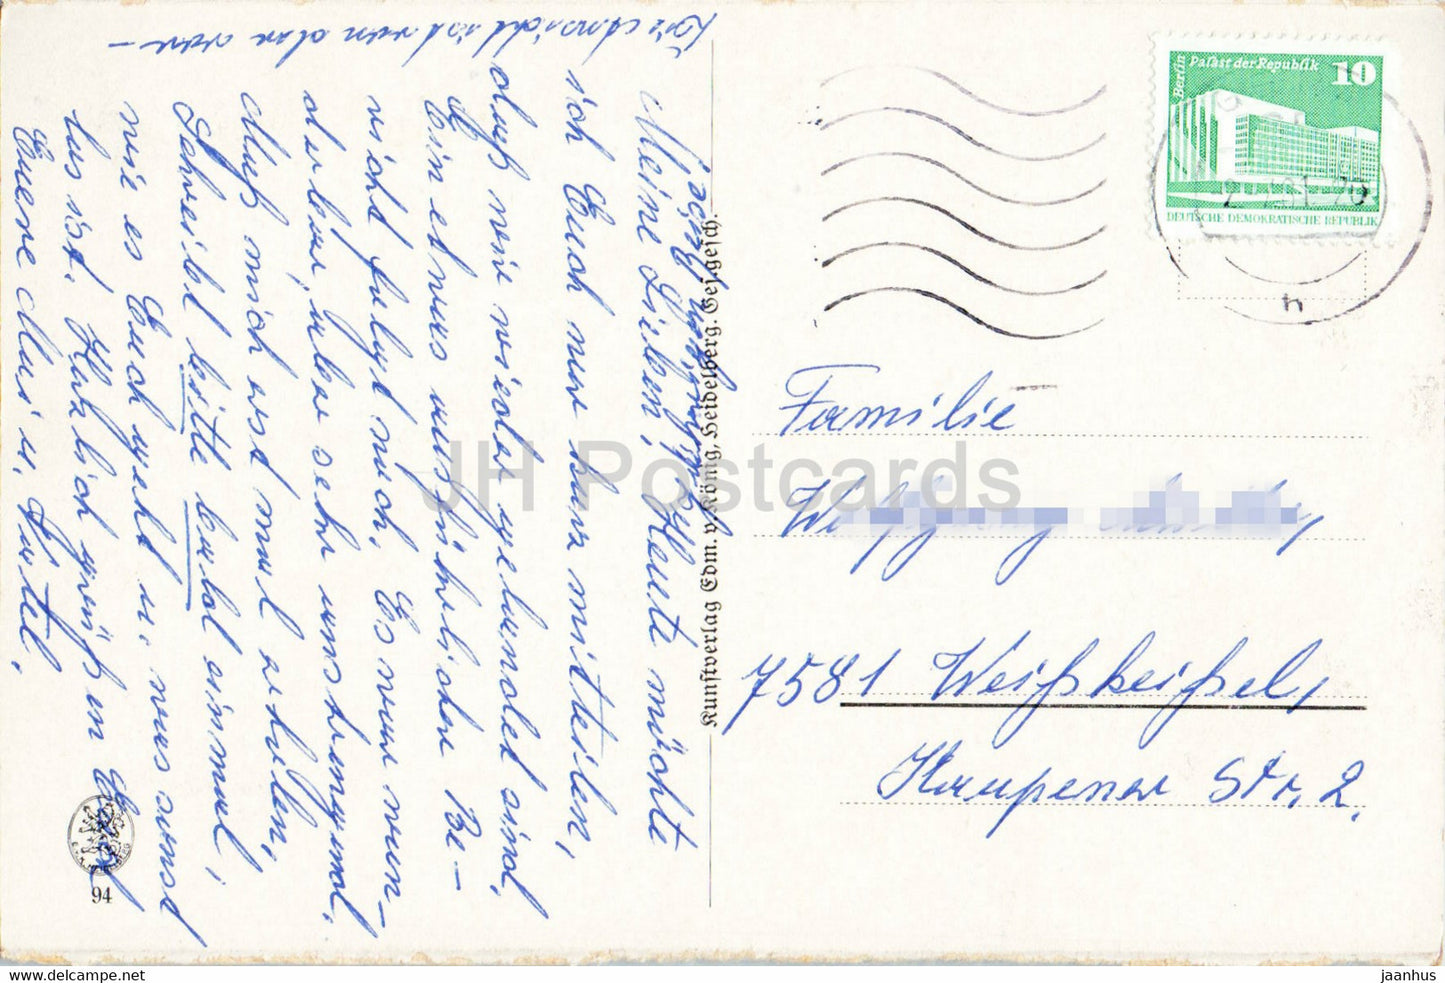 Die Ansicht ist von der vorigen
Meine Lieben, Heute möchte
ich Euch nur kurz mitteilen,
daß wir wieder gelandet sind.
Ein etwas ausführlicher Be-
richt folgt noch. Es war wun-
derbar, aber sehr anstrengend.
Muß mich erst mal erholen,
Schreibt bitte bald einmal,
wie es Euch geht u. was sonst
los ist. Herzlich grüßen Euch
Eure
Kunstverlag Edm. v. König, Heidelberg. Ges. gesch.
94
Berlin
Palast der Republik
10
DEUTSCHE DEMOKRATISCHE REPUBLIK
h
Familie
7581 Weißkeißel,
Kaupener Str. 2
JH Postcards
https://jhpostcard.net
jaanhus